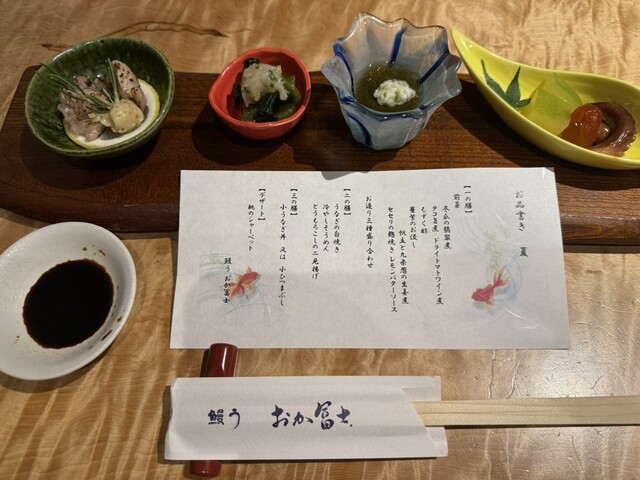 お品書き 夏
【一の膳】
前菜
冬瓜の翡翠煮
タコ旨煮 ドライトマトワイン煮
もずく酢
青菜のお浸し
セセリの麹焼き レモンバターソース
お造り三種盛り合わせ
【二の膳】
うなぎの白焼き
冷やしそうめん
とうもろこしの二見揚げ
【三の膳】
小うなぎ丼 又は 小ひつまぶし
【デザート】
桃のシャーベット
鰻うおか冨士
鰻う おか冨士